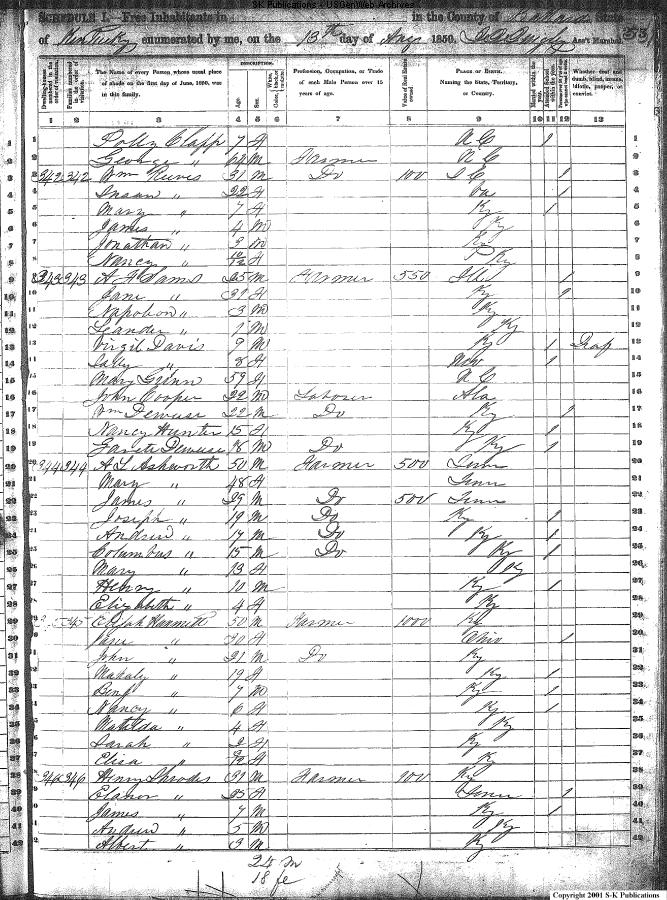 SK Publications - USGenWeb Archives
SCHEDULE I.—Free Inhabitants in in the County of Ballard State
of Kentucky enumerated by me, on the 13th day of Aug 1850. Ass't Marshal. 53
Dwelling-houses numbered in the order of visitation. Families numbered in the order of visitation. The Name of every Person whose usual place of abode on the first day of June, 1850, was in this family. DESCRIPTION. Age. Sex. White, black, or mulatto. Color Profession, Occupation, or Trade of each Male Person over 15 years of age. Value of Real Estate owned. PLACE OF BIRTH. Naming the State, Territory, or Country. Married within the year. Attended School within the year. Whether deaf and dumb, blind, insane, idiotic, pauper, or convict.
1 2 3 4 5 6 7 8 9 10 11 12 13
1 Polly Clapp 7 F N C 1 1
2 George " 64 M Farmer N C 2
3 342 342 Wm Reeves 31 M Do 100 S C 1 3
4 Susan " 22 F Va 1 4
5 Mary " 7 F Ky 1 5
6 James " 4 M Ky 6
7 Jonathan " 3 M Ky 7
8 Nancy " F Ky 8
9 343 343 A F Sams 25 M Farmer 550 Ills 1 9
10 Jane " 21 F Ky 1 10
11 Napoleon " 3 M Ky 11
12 Leander " 1 M Ky 12
13 Virgil Davis 9 M Ky 1 Deaf 13
14 Sally " 8 F 1 14
15 Mary Grinn 59 F N C 15
16 John Cooper 22 M Laborer Ala 16
17 Wm Dewese 22 M Do Ky 1 17
18 Nancy Hunter 15 F Ky 1 18
19 Dewese 18 M Do Ky 1 19
20 344 344 A L Ashworth 50 M Farmer 500 Tenn 20
21 Mary " 48 F Tenn 21
22 James " 29 M Do 500 Tenn 22
23 Joseph " 19 M Do Ky 1 23
24 Andrew " 17 M Do Ky 1 24
25 Columbus " 15 M Do Ky 1 25
26 Mary " 13 F Ky 26
27 Henry " 10 M Ky 1 27
28 Elizabeth " 4 F Ky 28
29 345 Elijah Hammett 50 M Farmer 1000 Ky 29
30 " 30 F Ohio 1 30
31 John " 21 M Do Ky 31
32 Mahaly " 19 F Ky 1 32
33 Benj " 7 M Ky 1 33
34 Nancy " 6 F Ky 1 34
35 Matilda " 4 F Ky 35
36 Sarah " 2 F Ky 36
37 Elisa " F Ky 37
38 346 346 Henry Shrodes 31 M Farmer 900 Ky 38
39 Elanor " 25 F Tenn 1 39
40 James " 7 M Ky 1 40
41 Andrew " 5 M Ky 41
42 Albert " 3 M Ky 42
24 m
18 fe
Copyright 2001 S-K Publications